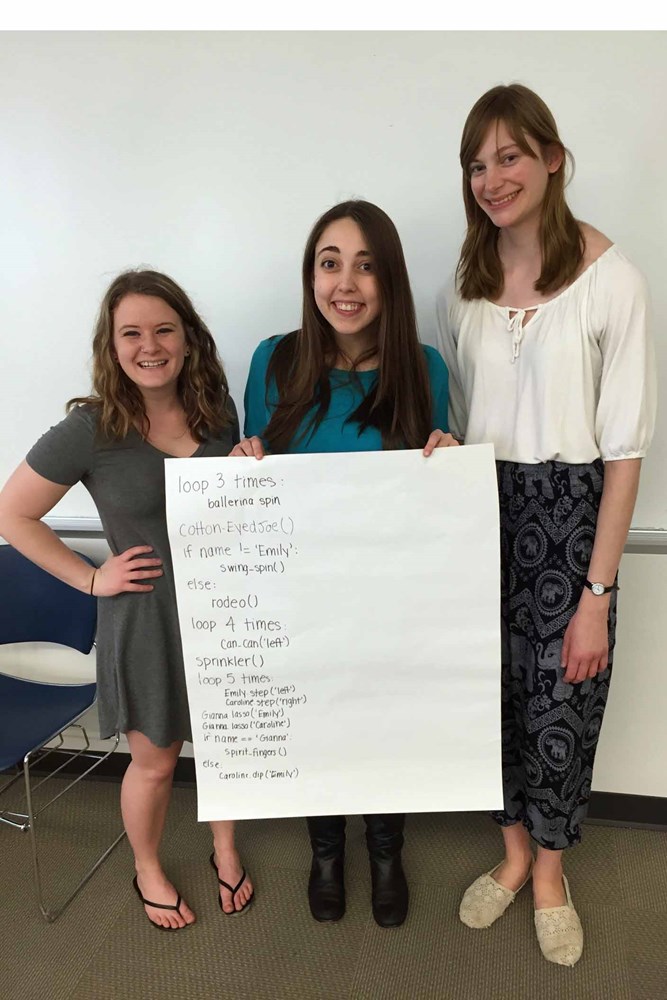 loop 3 times:
ballerina spin
Cotton-EyedJoe()
if name != 'Emily':
swing-spin()
else:
rodeo()
loop 4 times:
can-can('left')
sprinkler()
loop 5 times:
Emily.step('left')
Caroline.step('right')
Gianna.lasso('Emily')
Gianna.lasso('Caroline')
if name == 'Gianna':
spirit-fingers()
else:
Caroline.dip('Emily')